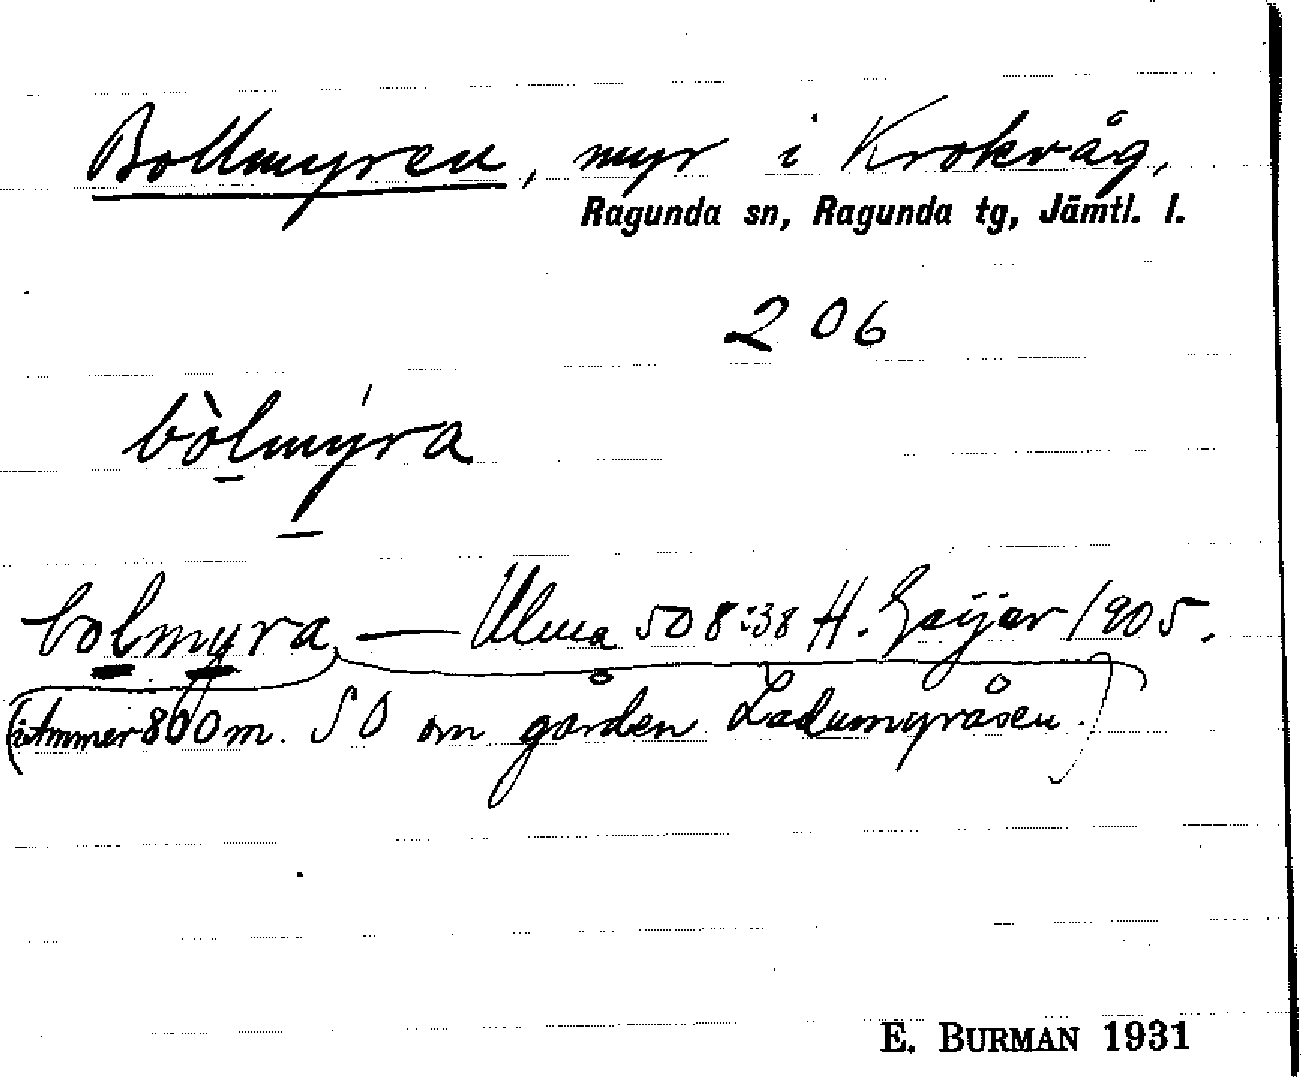 Bollmyren, myr i Krokvåg,
Ragunda sn, Ragunda tg, Jämtl. l.
206
bòlmýra
bolmyra — Ulma 508:38 H. Geijer 1905.
800 m. SO om gården Ladumyråsen.)
E. BURMAN 1931